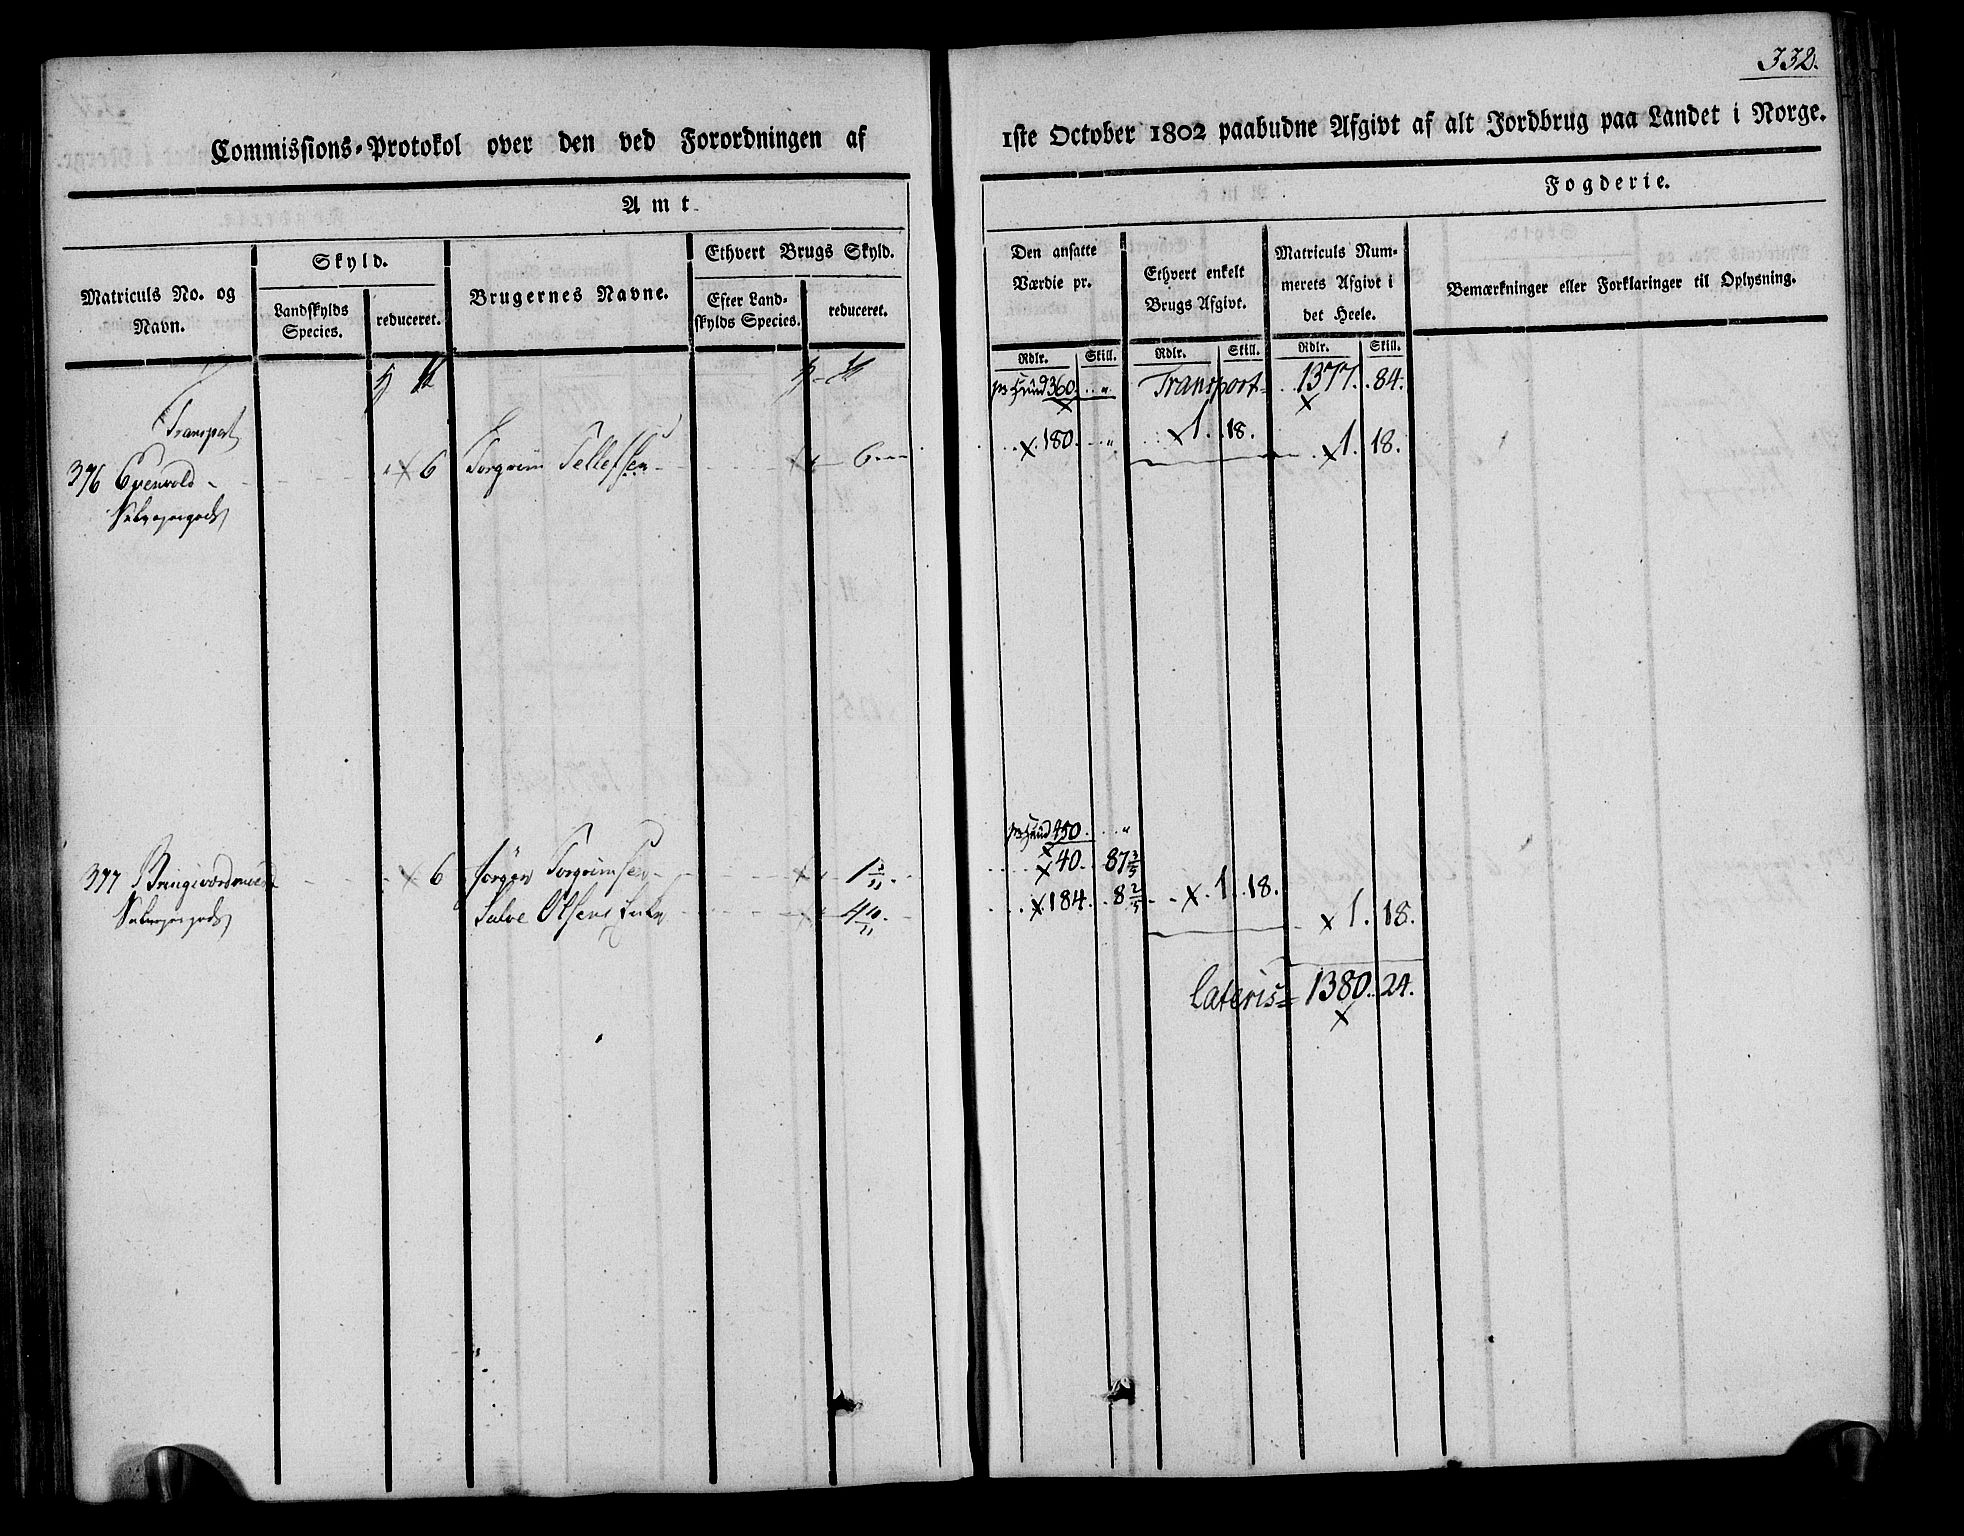 332.
Commissions-Protokol over den ved Forordningen af
1ste October 1802 paabudne Afgivt af alt Jordbrug paa Landet i Norge.
Amt
Fogderie.
Matriculs No. og Navn.
Skyld.
Landskylds Species.
reduceret.
Brugernes Navne.
Ethvert Brugs Skyld.
Efter Landskylds Species.
reduceret.
Den ansatte Værdie pr.
Ethvert enkelt Brugs Afgivt.
Matriculs Nummerets Afgivt i det Heele.
Bemærkninger eller Forklaringer til Oplysning.
Rdlr. Skill. Rdlr. Skill. Rdlr. Skill.
pr Hud 360 " Transport 1377. 84.
Transport
376 6 Torgrim Tellefsen 6 180. " 1. 18. 1. 18.
pr Hud 450. "
377 6 Jörgen Torgrimsen 1 1/11 40. 87 3/5
Salve Olsens 4 10/11 184. 8 2/5 1. 18. 1. 18.
Lateris 1380. 24.